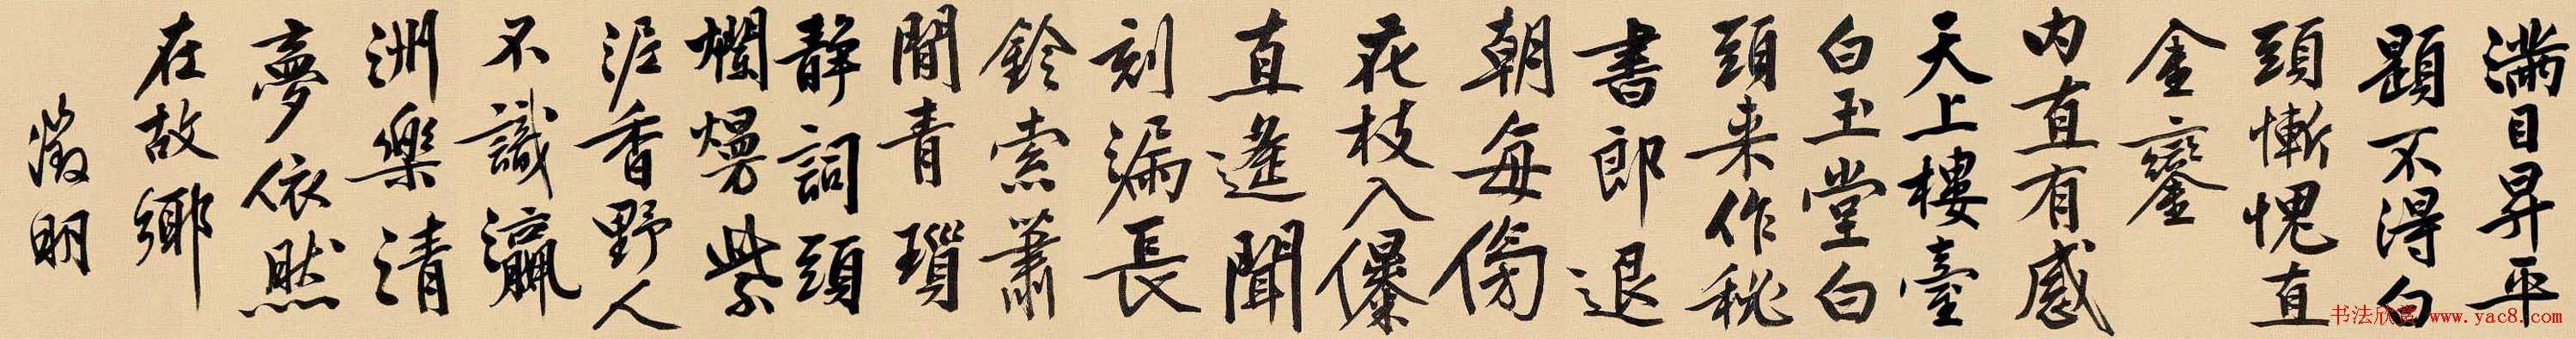 滿目昇平
題不得白
頭慚愧直
金鑾
内直有感
天上樓臺
白玉堂白
頭来作秘
書郎退
朝每傍
花枝入儤
直遥聞
刻漏長
鈴索蕭
閒青瑣
靜詞頭
爛熳紫
泥香野人
不識瀛
洲樂清
夢依然
在故鄉
徵明
书法欣赏 www.yac8.com